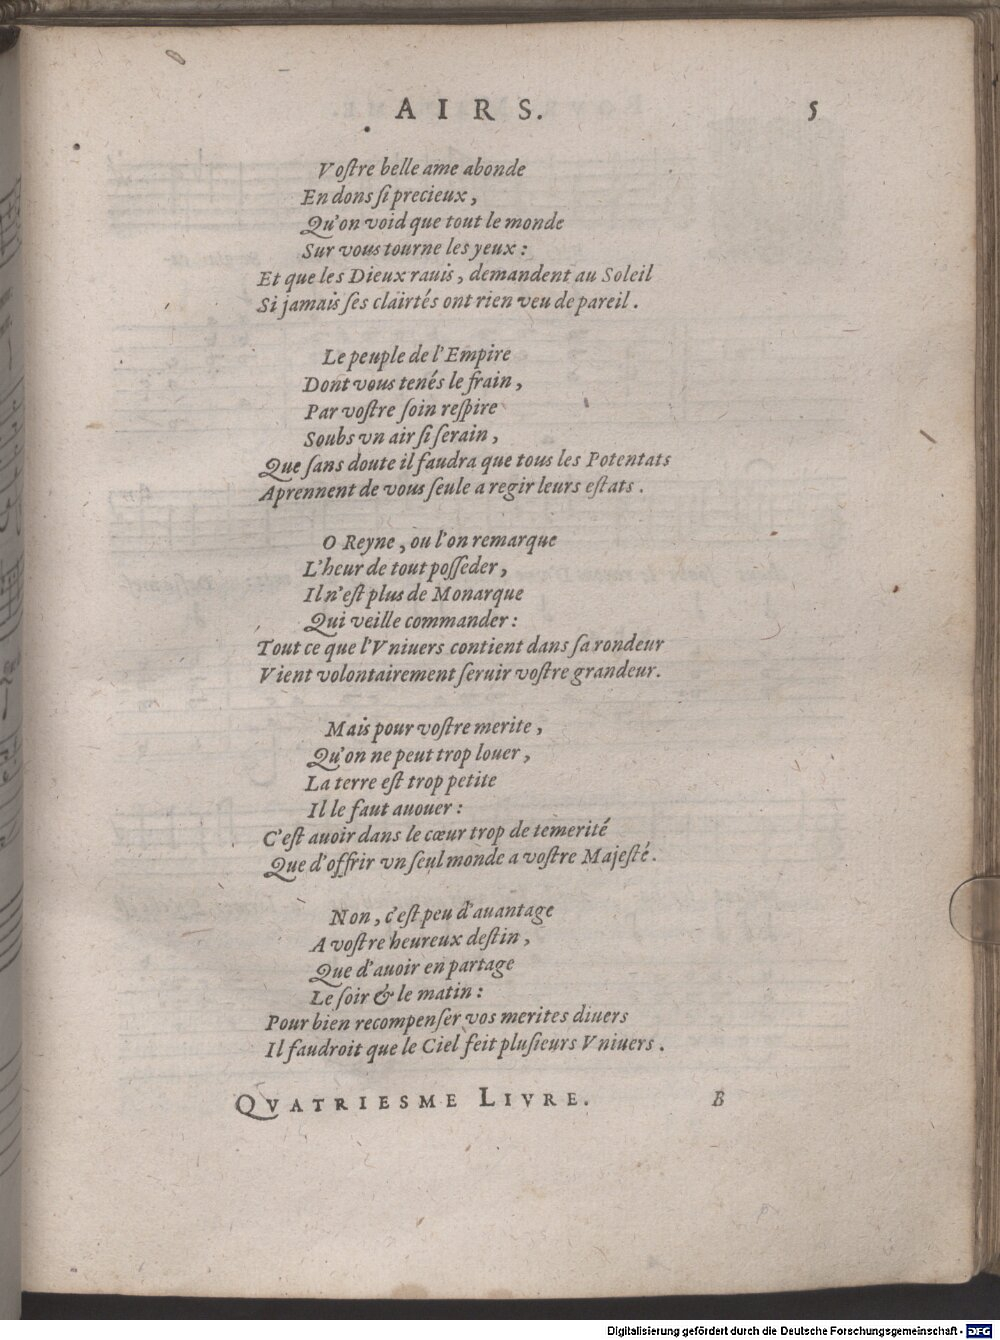 AIRS. 5
Voſtre belle ame abonde
En dons ſi precieux,
Qu'on void que tout le monde
Sur vous tourne les yeux:
Et que les Dieux rauis, demandent au Soleil
Si jamais ſes clairtés ont rien veu de pareil.
Le peuple de l'Empire
Dont vous tenés le frain,
Par voſtre ſoin reſpire
Soubs vn air ſi ſerain,
Que ſans doute il faudra que tous les Potentats
Aprennent de vous ſeule a regir leurs eſtats.
O Reyne, ou l'on remarque
L'heur de tout poſſeder,
Il n'eſt plus de Monarque
Qui veille commander:
Tout ce que l'Vniuers contient dans ſa rondeur
Vient volontairement ſeruir voſtre grandeur.
Mais pour voſtre merite,
Qu'on ne peut trop louer,
La terre eſt trop petite
Il le faut auouer:
C'eſt auoir dans le cœur trop de temerité
Que d'offrir vn ſeul monde a voſtre Majeſté.
Non, c'eſt peu d'auantage
A voſtre heureux deſtin,
Que d'auoir en partage
Le ſoir & le matin:
Pour bien recompenſer vos merites diuers
Il faudroit que le Ciel feit pluſieurs Vniuers.
QVATRIESME LIVRE. B
Digitalisierung gefördert durch die Deutsche Forschungsgemeinschaft - DFG